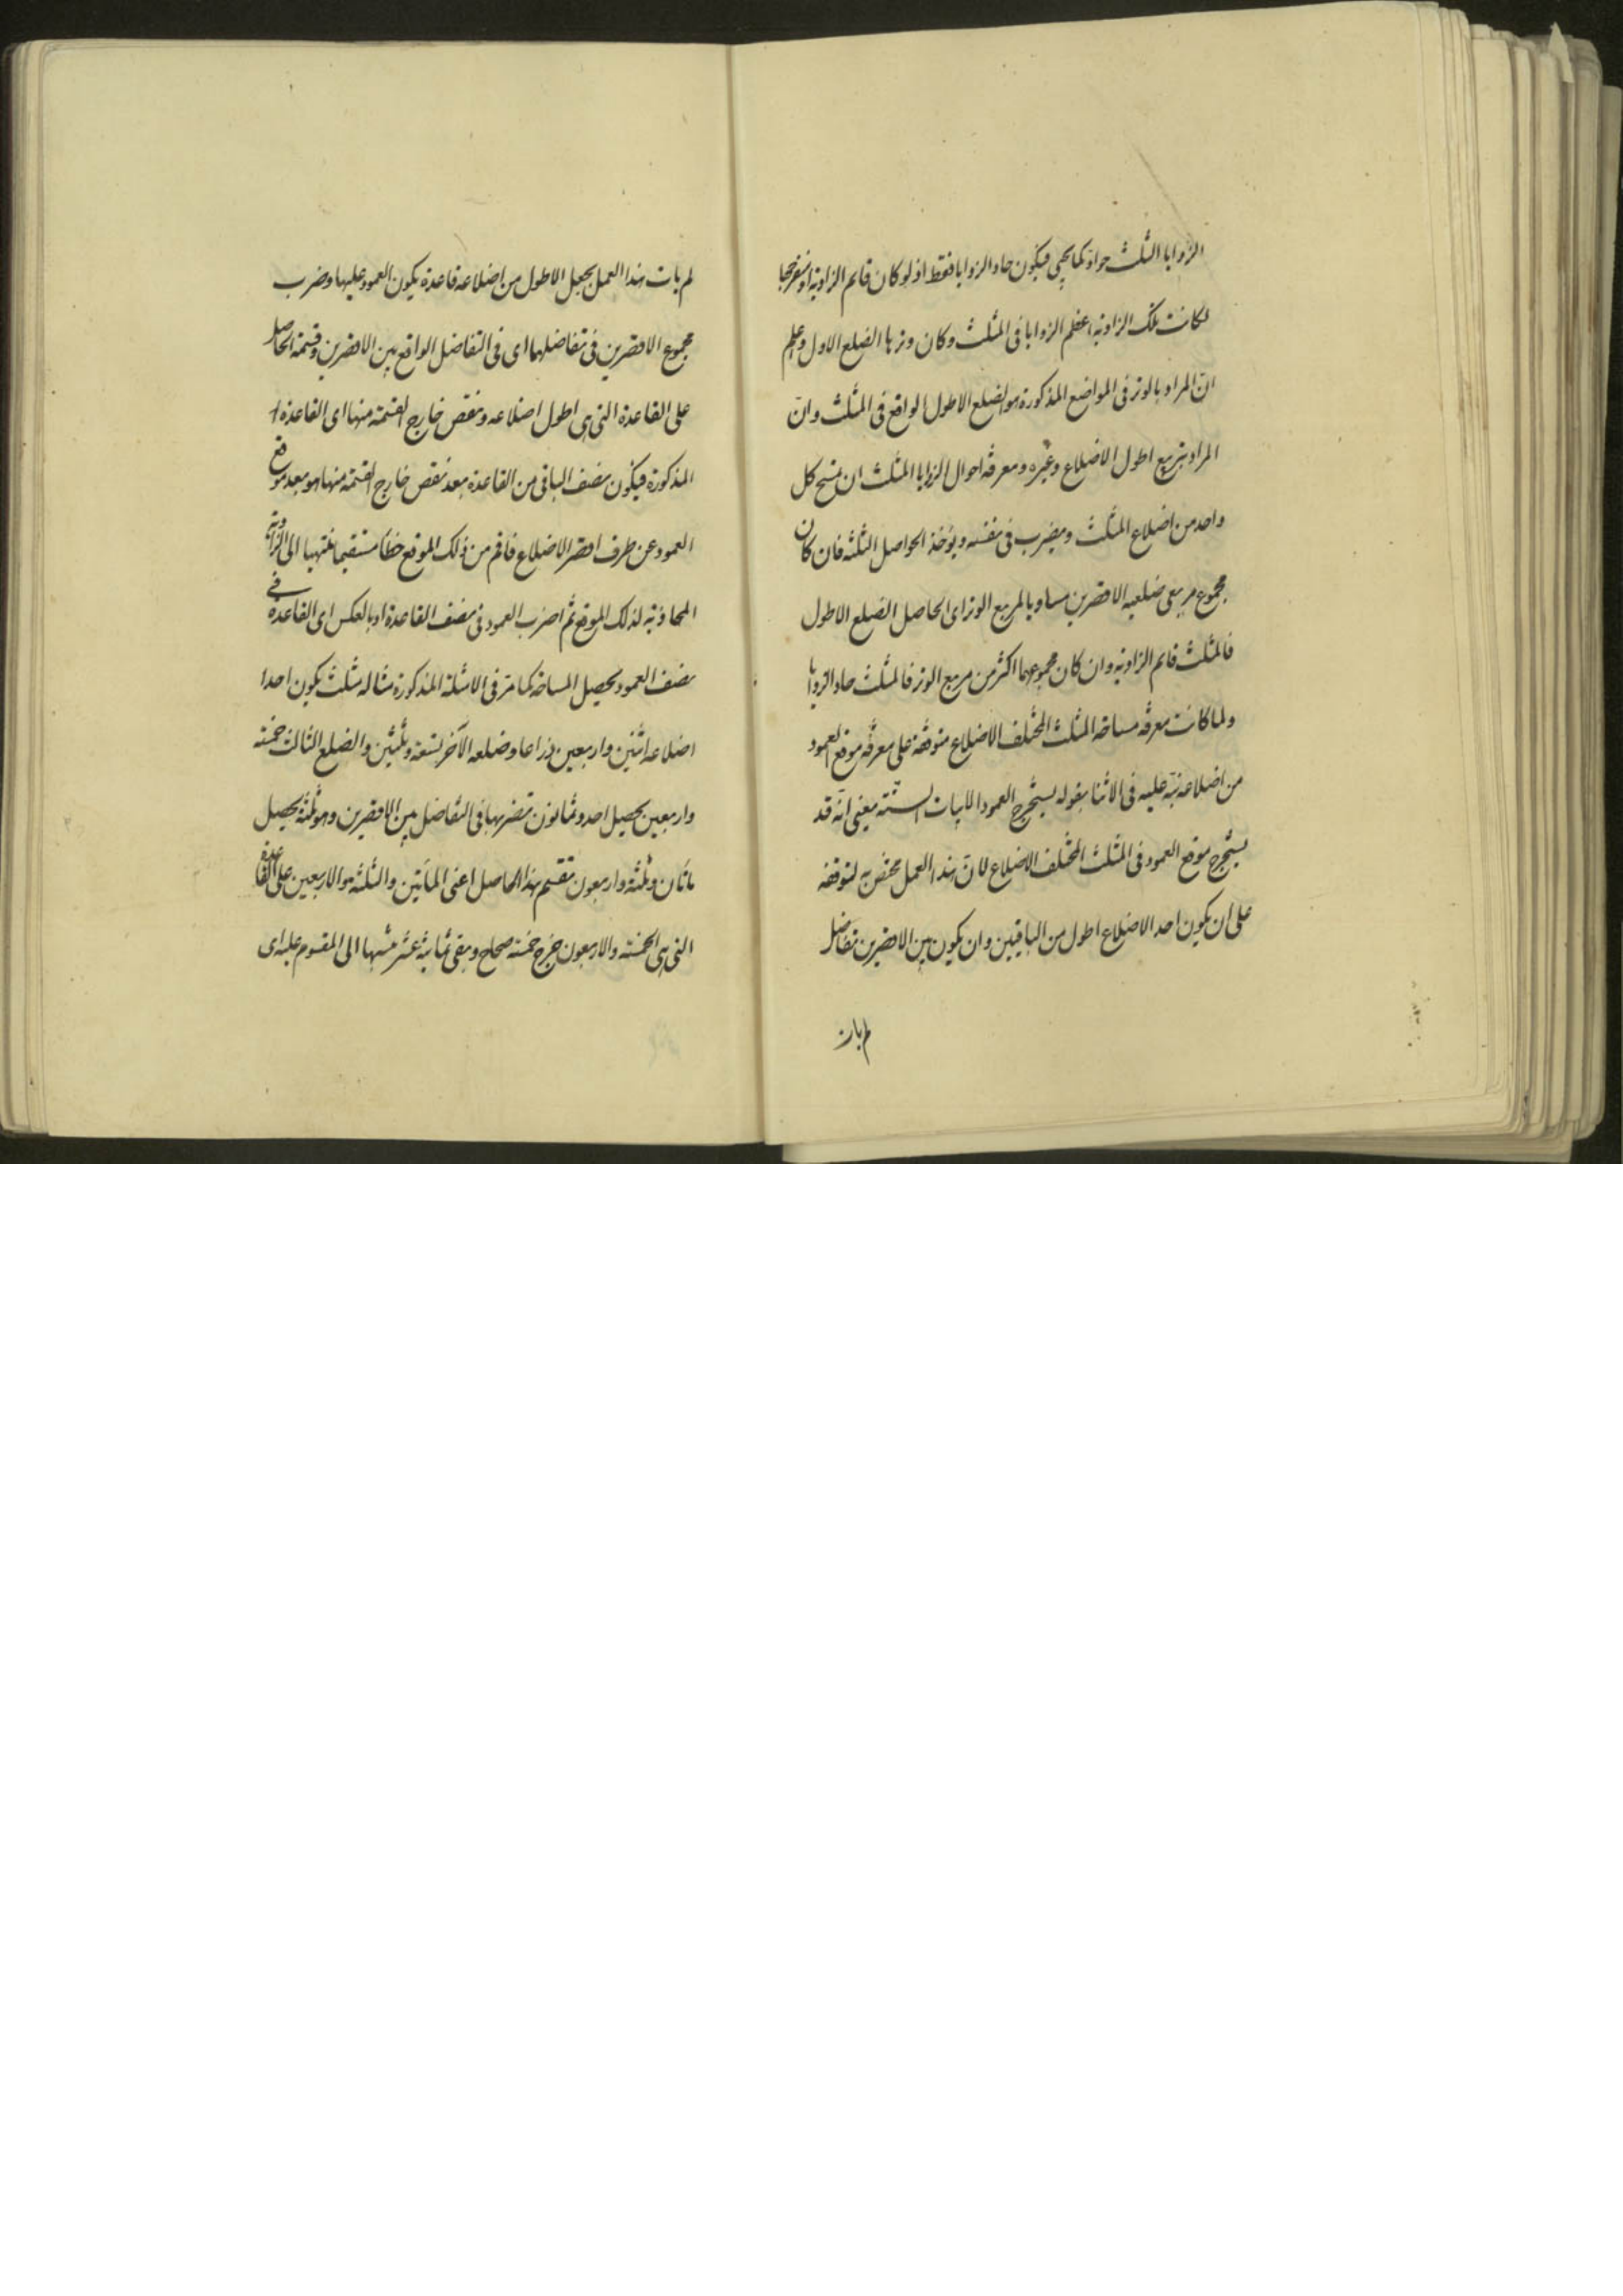 الزوايا الثلث حواد كما يجيء فيكون حاد الزوايا فقط اذ لو كان قائم الزاوية او منفرجها
لكانت تلك الزاوية اعظم الزوايا فى المثلث وكان وترها الضلع الاول واعلم
ان المراد بالوتر فى المواضع المذكورة هو الضلع الاطول الواقع فى المثلث وان
المراد بتربيع اطول الاضلاع وغيره ومعرفة احوال الزوايا المثلث ان يمسح كل
واحد من اضلاع المثلث ويضرب فى نفسه ويؤخذ الحواصل الثلثة فان كان
مجموع مربعى ضلعيه الاقصرين مساويا لمربع الوتر اى الحاصل الضلع الاطول
فالمثلث قائم الزاوية وان كان مجموعهما اكثر من مربع الوتر فالمثلث حاد الزوايا
ولما كانت معرفة مساحة المثلث المختلف الاضلاع متوقفة على معرفة موقع العمود
من اضلاعه نبّه عليه فى الاثنا بقوله يستخرج العمود الابيات الستّة يعنى انّه قد
يستخرج موقع العمود فى المثلث المختلف الاضلاع لانّ هذا العمل مختص به لتوقفه
على ان يكون احد الاضلاع اطول من الباقيين وان يكون بين الاقصرين تفاضل
لم يات
لم يات هذا العمل بجعل الاطول من اضلاعه قاعدة يكون العمود عليها وضرب
مجموع الاقصرين فى تفاضلهما اى فى التفاضل الواقع بين الاقصرين وقسمة الحاصل
على القاعدة التى هى اطول اضلاعه ونقص خارج القسمة منها اى القاعدة
المذكورة فيكون نصف الباقى من القاعدة بعد نقص خارج القسمة منها هو بعد موقع
العمود عن طرف اقصر الاضلاع فاقم من ذلك الموقع خطا مستقيما منتهيا الى الزاوية
المحاذية لذلك الموقع ثم اضرب العمود فى نصف القاعدة او بالعكس اى القاعدة فى
نصف العمود يحصل المساحة كما مر فى الامثلة المذكورة مثاله مثلث يكون احدا
اضلاعه اثنين واربعين ذراعا وضلعه الآخر تسعة وثلثين والضلع الثالث خمسة
واربعين يحصل احد وثمانون تضربها فى التفاضل بين الاقصرين وهو ثلثة يحصل
ماتان وثلثة واربعون تقسم هذا الحاصل اعنى الماتين والثلثة والاربعين على القاعدة
التى هى الخمسة والاربعون خرج خمسة صحاح ويبقى ثمانية عشر نسبها الى المقسوم عليه اى